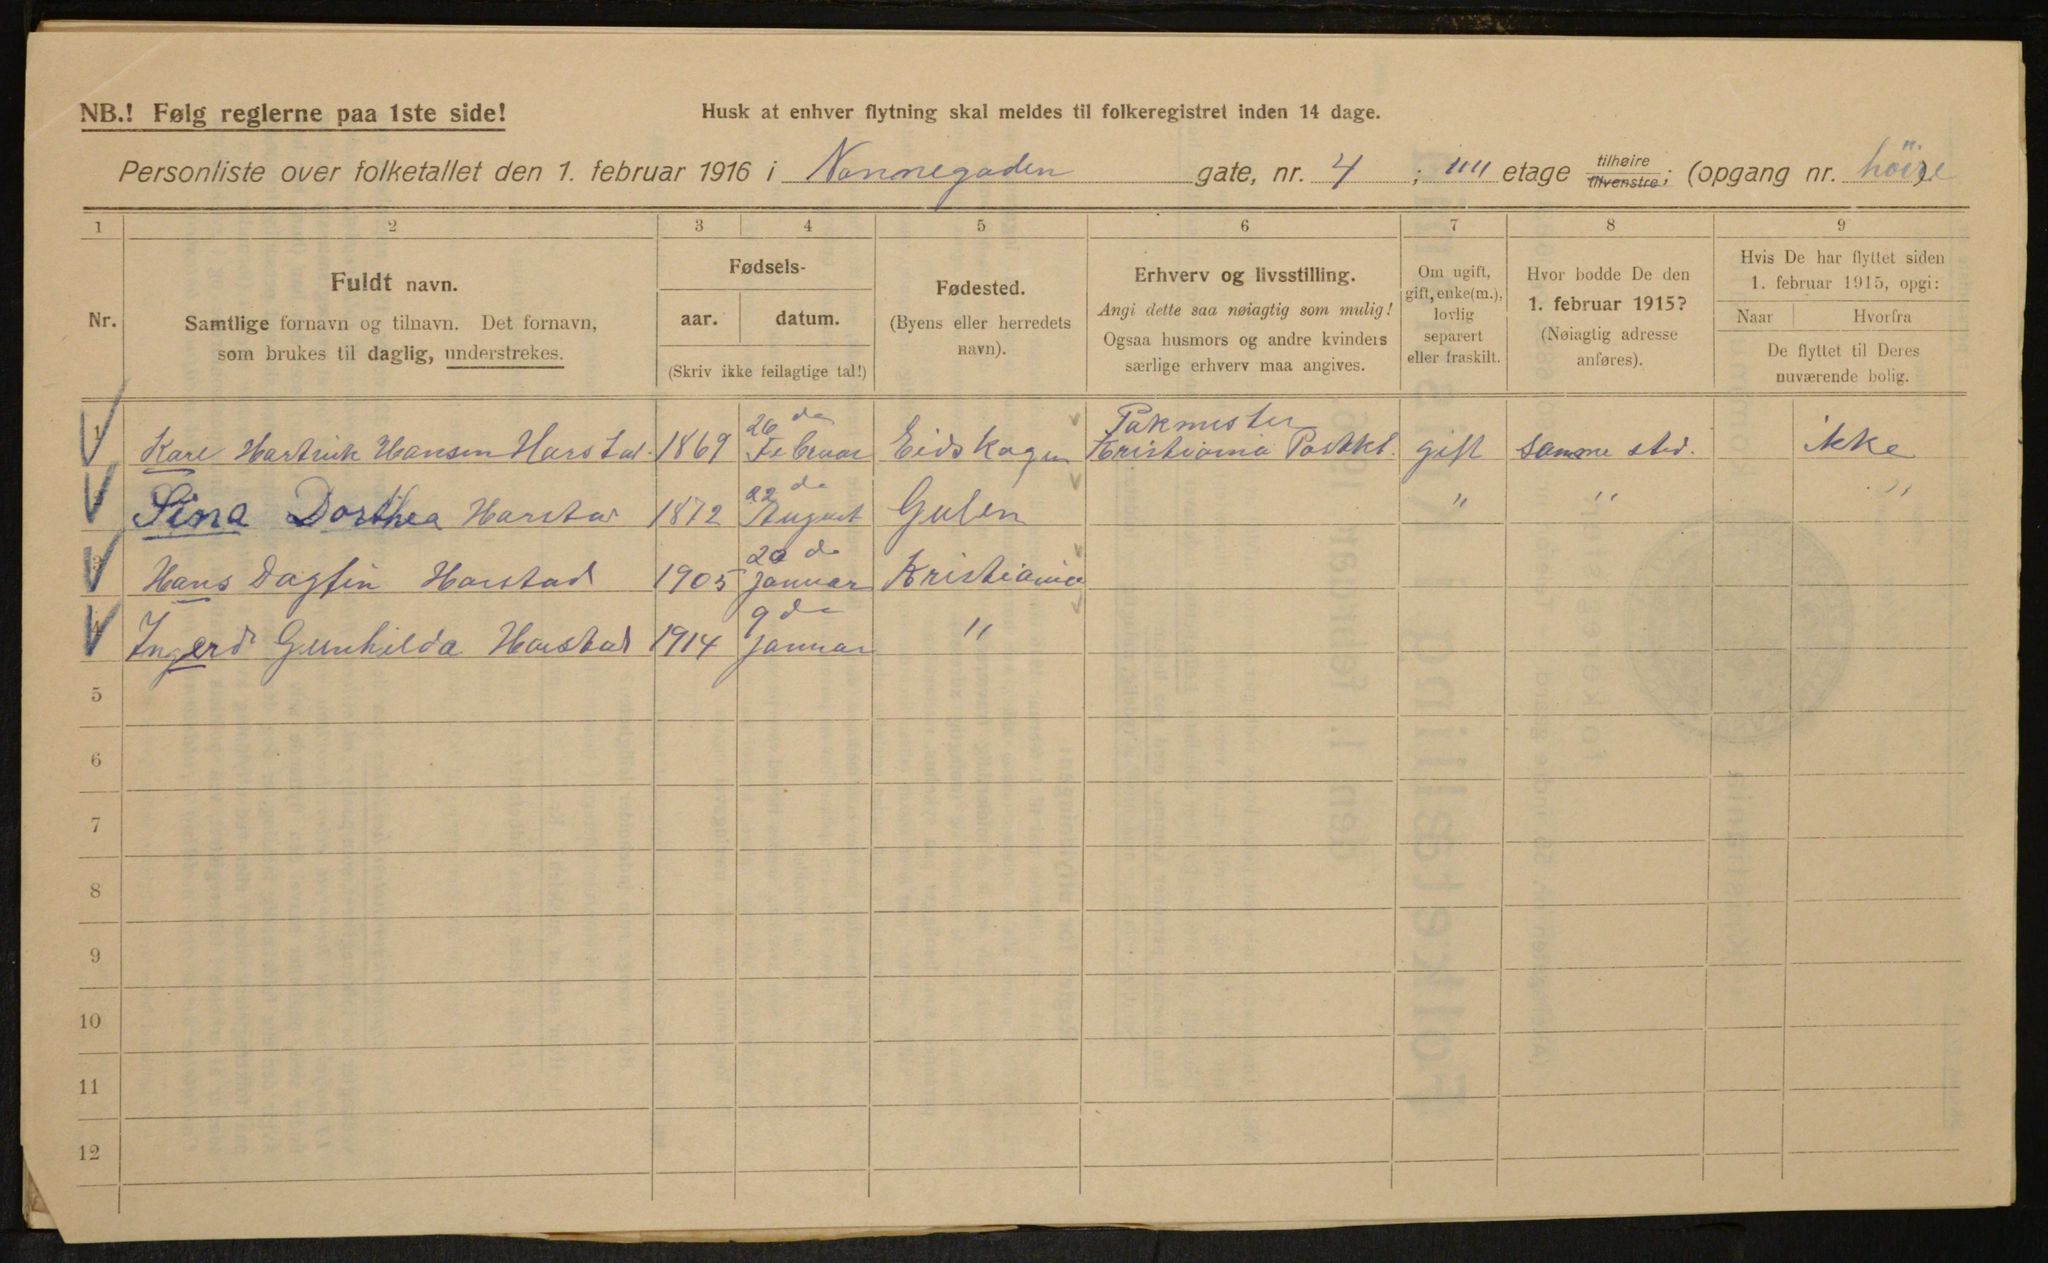 NB.! Følg reglerne paa 1ste side!
Husk at enhver flytning skal meldes til folkeregistret inden 14 dage.
Personliste over folketallet den 1. februar 1916 i Nannegaden gate, nr. 4 ; IIII etage tilhøire tilvenstre; (opgang nr. höire)
1 2 3 4 5 6 7 8 9
Nr.
Fuldt navn.
Samtlige fornavn og tilnavn. Det fornavn,
som brukes til daglig, understrekes.
Fødsels-
aar. datum.
(Skriv ikke feilagtige tal!)
Fødested.
(Byens eller herredets
navn).
Erhverv og livsstilling.
Angi dette saa nøiagtig som mulig!
Ogsaa husmors og andre kvinders
særlige erhverv maa angives.
Om ugift,
gift, enke(m.),
lovlig
separert
eller fraskilt.
Hvor bodde De den
1. februar 1915?
(Nøiagtig adresse
anføres).
Hvis De har flyttet siden
1. februar 1915, opgi:
Naar Hvorfra
De flyttet til Deres
nuværende bolig.
26 de Pakmester
1 Kare Hansen Harstad 1869 Februar Eidskogen Kristiania Postkt. gift samme sted. ikke
22 de
Sina Dorthea Harstad 1872 August Gulen " " "
20 de
3 Hans Dagfin Harstad 1905 Januar Kristiania
9 de
4 Ingerd Gunhilda Harstad 1914 Januar "
5
6
7
8
9
10
11
12